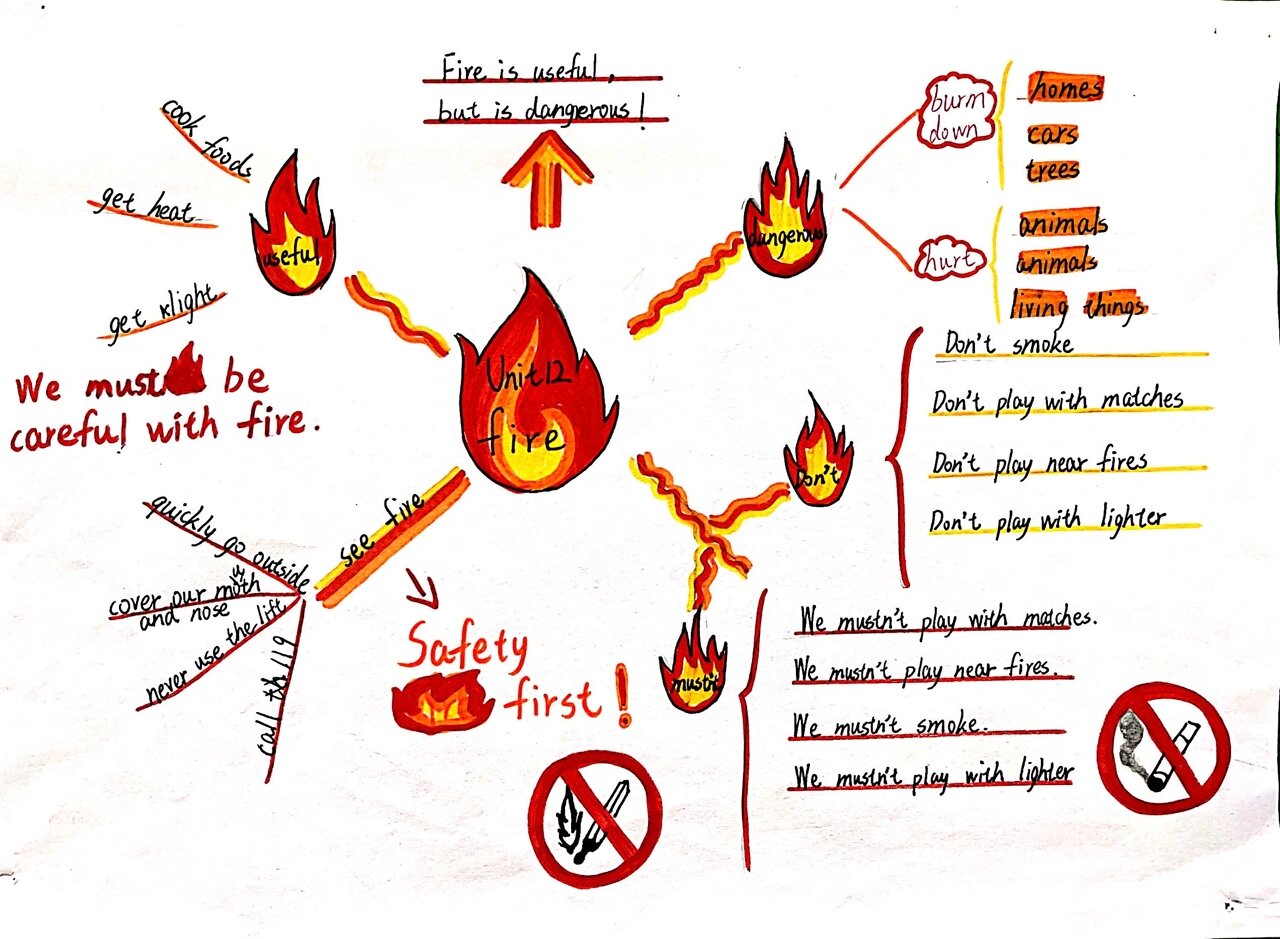 Fire is useful,
but is dangerous!
cook foods
get heat
get light
useful
We must be
careful with fire.
Unit12
fire
dangerous
burn
down
homes
cars
trees
hurt
animals
animals
living things
Don't
Don't smoke
Don't play with matches
Don't play near fires
Don't play with lighter
mustn't
We mustn't play with matches.
We mustn't play near fires.
We mustn't smoke.
We mustn't play with lighter
see fire
quickly go outside
cover our mouth
and nose
never use the lift
call 119
Safety
first!